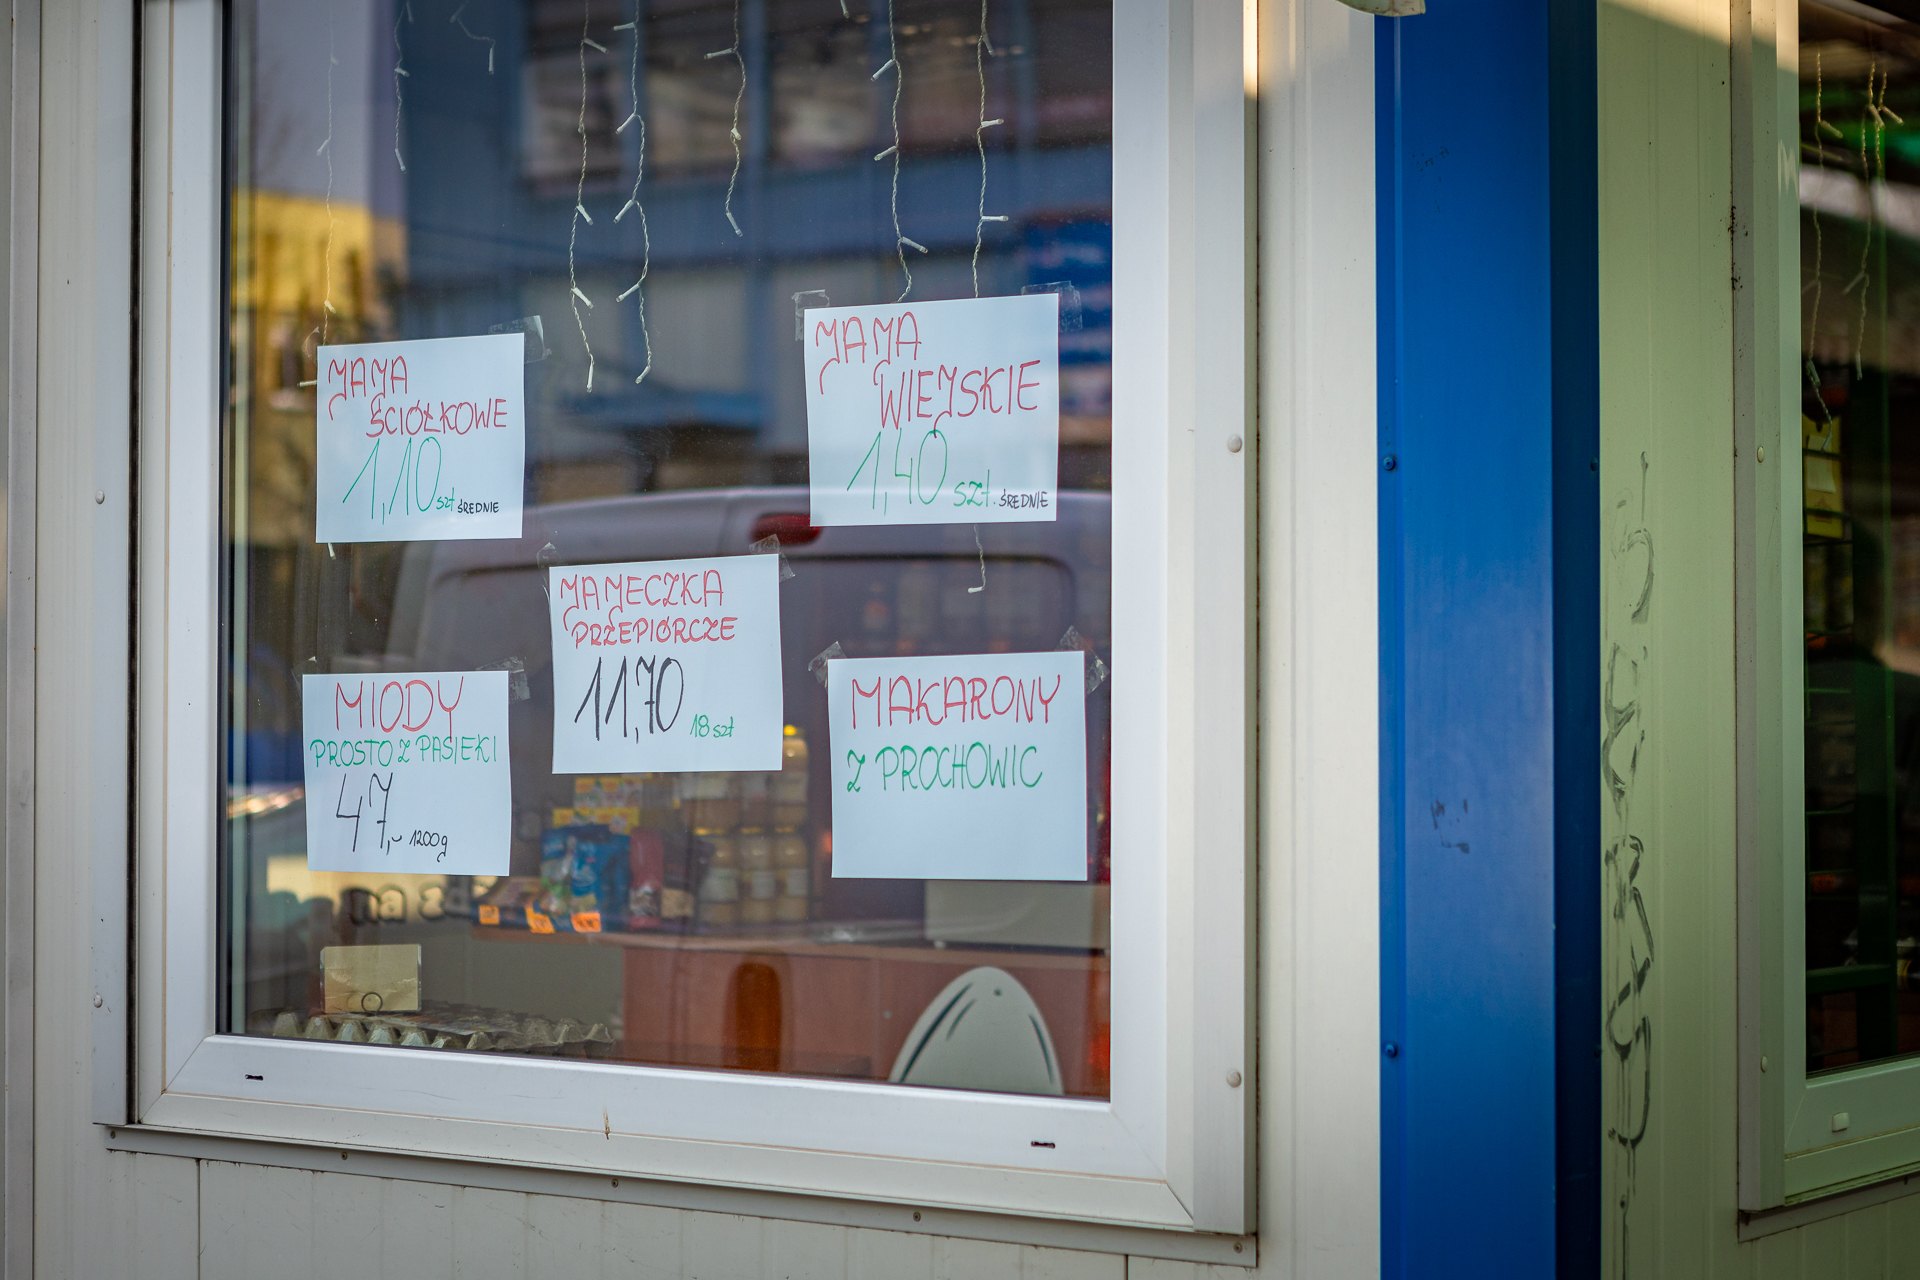 JAJA
ŚCIÓŁKOWE
1,10 szt ŚREDNIE
JAJA
WIEJSKIE
1,40 szt. ŚREDNIE
JAJECZKA
PRZEPIÓRCZE
11,70 18 szt
MIODY
PROSTO Z PASIEKI
47,- 1200g
MAKARONY
Z PROCHOWIC
na z